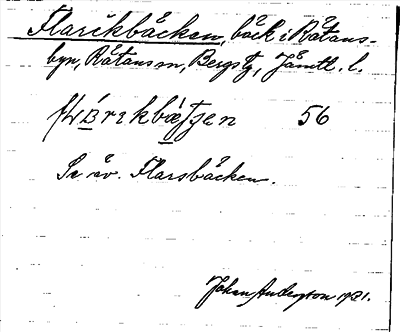 Flarikbäcken, bäck i Rätans-
byn, Rätans sn, Bergs tg, Jämtl. l.
56
Se äv. Flarsbäcken.
Johan Anderson 1921.